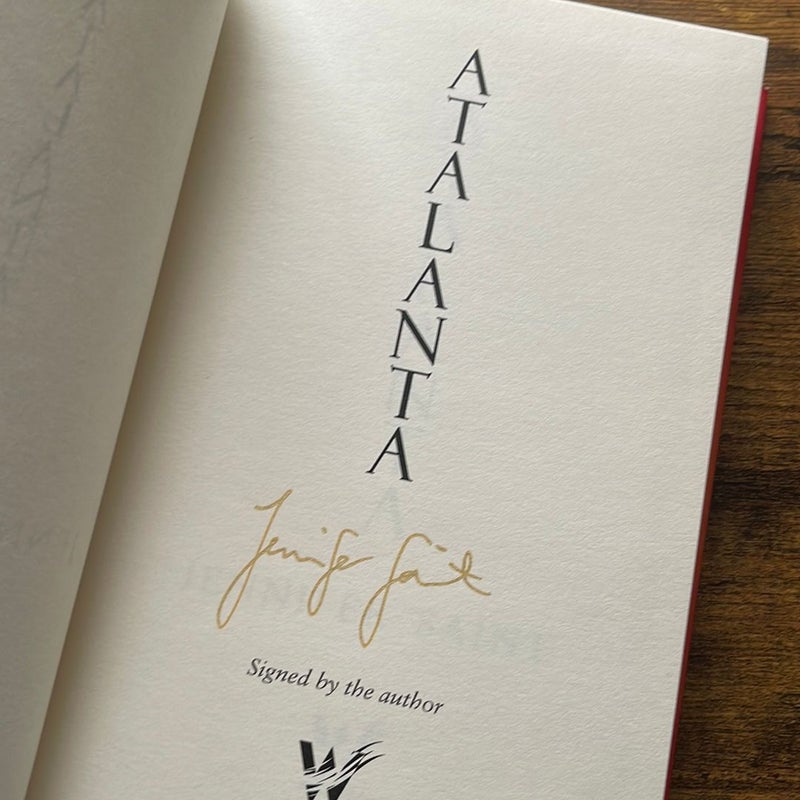 ATALANTA
Jennifer Saint
Signed by the author
W